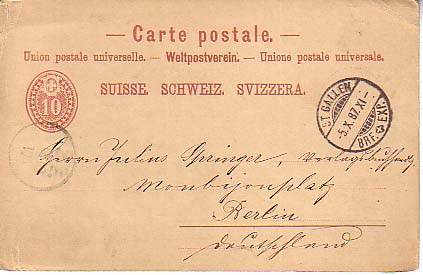 — Carte postale. —
Union postale universelle. — Weltpostverein. — Unione postale universale.
SUISSE. SCHWEIZ. SVIZZERA.
10
ST. GALLEN
-5.X.87.XI-
BRF. EXP.
Herrn Julius Springer, Verlagsbuchhdlg
Monbijouplatz
Berlin
Deutschland